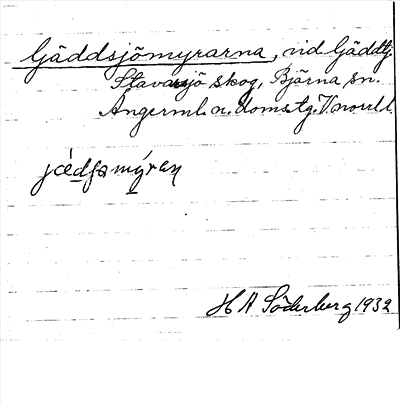 Gäddsjömyrarna, vid Gäddtj.
Stavarsjö skog, Björna sn.
Ångerml. n. doms.tg. V.norrl.l.
H A Söderberg 1932